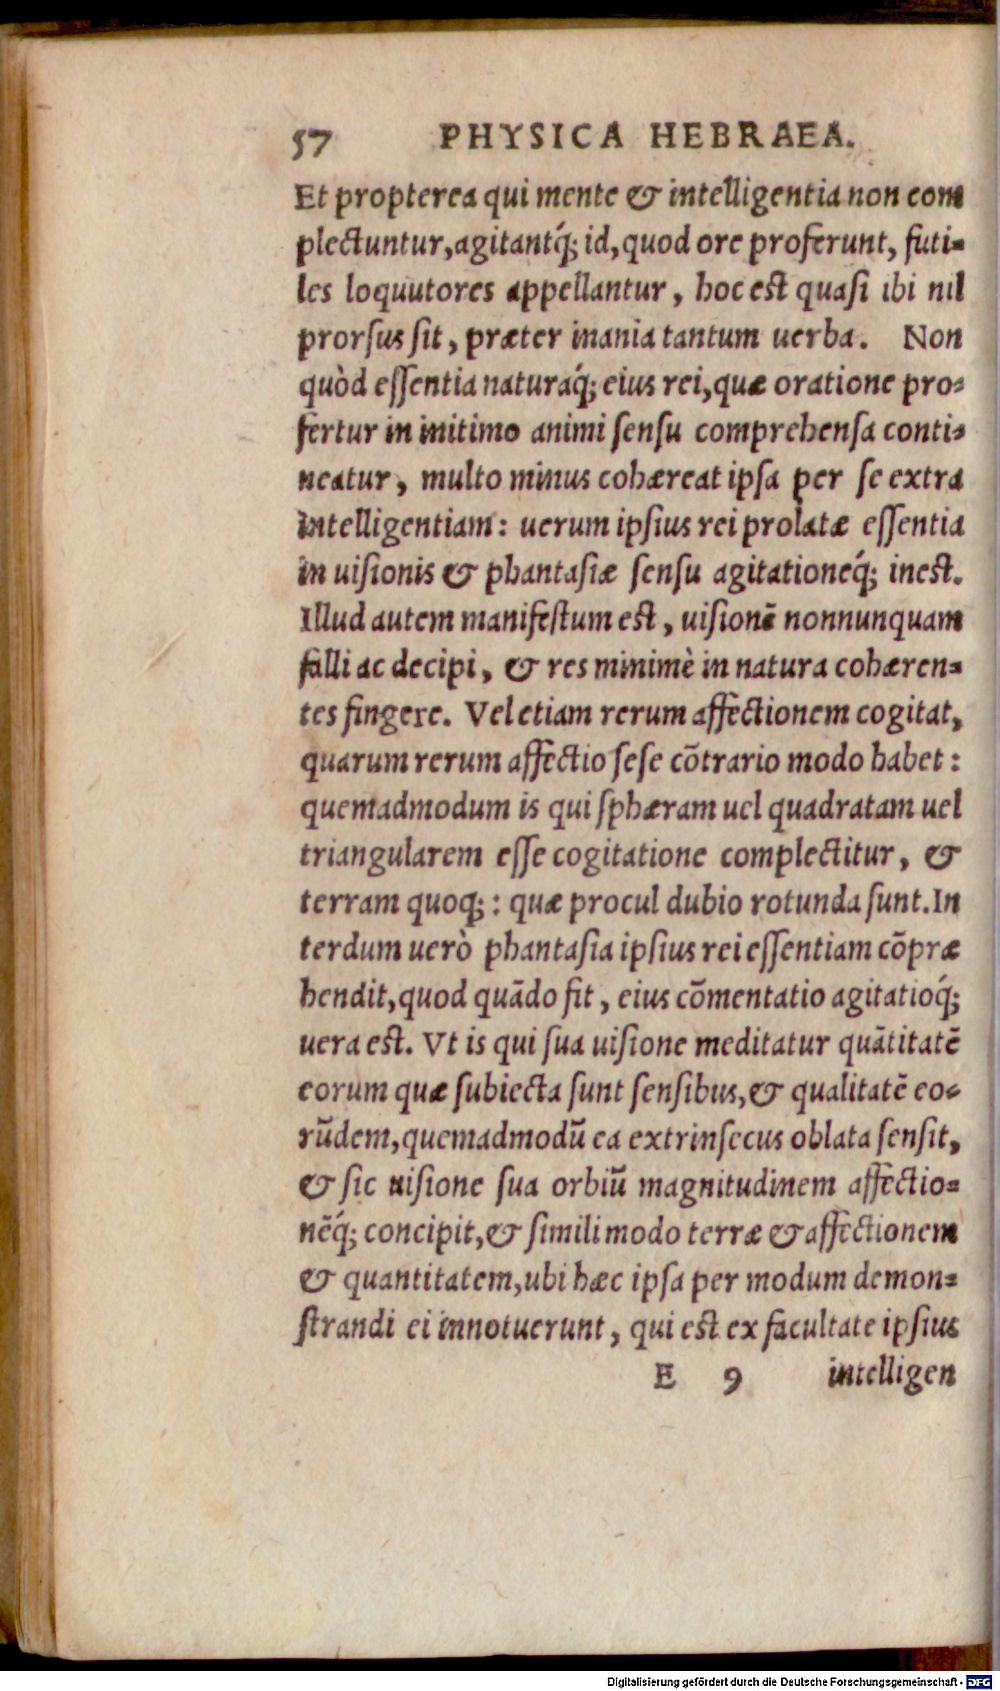 57 PHYSICA HEBRAEA.
Et propterea qui mente & intelligentia non com
plectuntur, agitantq́; id, quod ore proferunt, futi-
les loquutores appellantur, hoc est quasi ibi nil
prorsus sit, præter inania tantum uerba. Non
quòd essentia naturaq́; eius rei, quæ oratione pro-
fertur in initimo animi sensu comprehensa conti-
neatur, multo minus cohæreat ipsa per se extra
intelligentiam: uerum ipsius rei prolatæ essentia
in uisionis & phantasiæ sensu agitationeq́; inest.
Illud autem manifestum est, uisionē nonnunquam
falli ac decipi, & res minimè in natura cohæren-
tes fingere. Vel etiam rerum affectionem cogitat,
quarum rerum affectio sese cōtrario modo habet:
quemadmodum is qui sphæram uel quadratam uel
triangularem esse cogitatione complectitur, &
terram quoq;: quæ procul dubio rotunda sunt. In
terdum uerò phantasia ipsius rei essentiam cōpræ
hendit, quod quādo fit, eius cōmentatio agitatioq́;
uera est. Vt is qui sua uisione meditatur quātitatē
eorum quæ subiecta sunt sensibus, & qualitatē eo-
rūdem, quemadmodū ea extrinsecus oblata sensit,
& sic uisione sua orbiū magnitudinem affectio-
nēq́; concipit, & simili modo terræ & affectionem
& quantitatem, ubi hæc ipsa per modum demon-
strandi ei innotuerunt, qui est ex facultate ipsius
E 9 intelligen
Digitalisierung gefördert durch die Deutsche Forschungsgemeinschaft - DFG